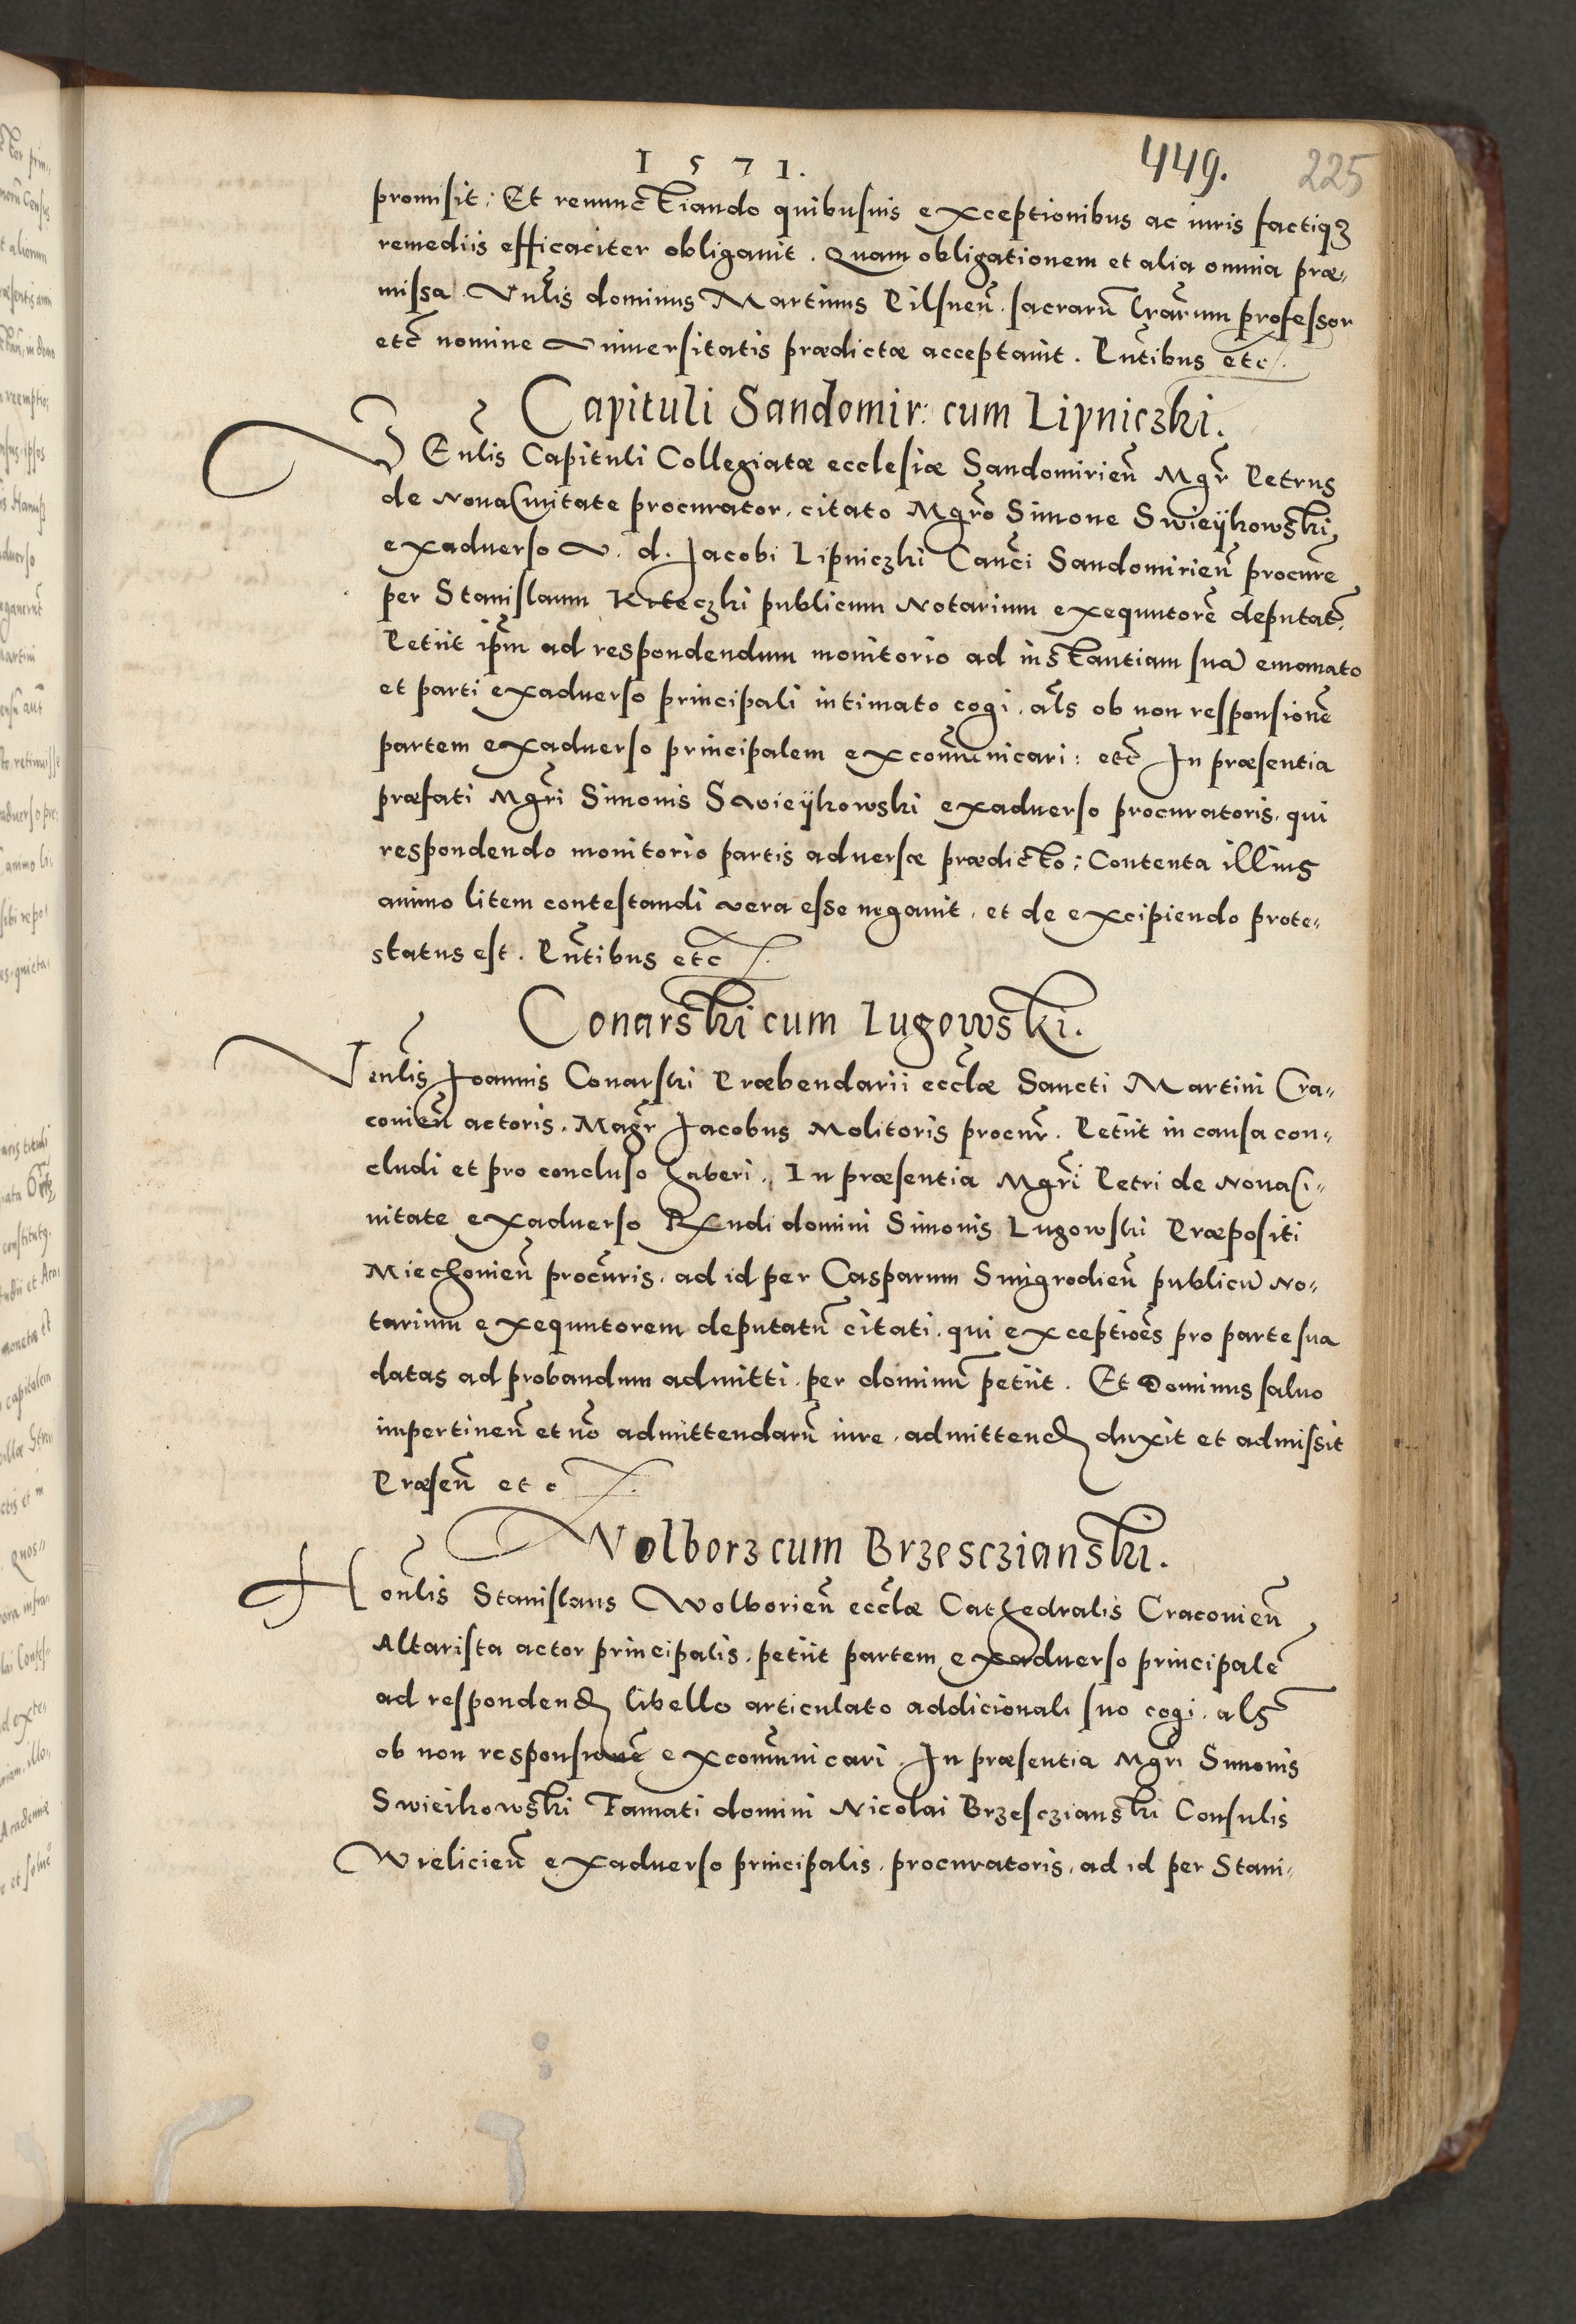 1571.
449.
225
promisit; Et renunctiando quibusuis exceptionibus ac iuris factiqꝫ
remediis efficaciter obligauit. Quam obligationem et alia omnia præ„
missa. Vnlis dominus Martinus Pilsneñ. sacrarū lrarum professor
etc̄ nomine Vniuersitatis prædictæ acceptauit. Pñtibus etc.
Capituli Sandomir: cum Lipniczki.
VEnlis Capituli Collegiatæ ecclesiæ Sandomirieñ Mgr̄ Petrus
de NouaCiuitate procurator, citato Mgrō Simone Swieÿkowski,
exaduerso V. d. Jacobi Lipniczki Canc̄i Sandomirieñ procurē
per Stanislaum Kiteczki publicum Notarium exequutorē deputat̄.
Petiit ip̄m ad respondendum monitorio ad instantiam suā emanato
et parti exaduerso principali intimato cogi, als̄ ob non responsionē
partem exaduerso principalem excom̄unicari: etc̄ In præsentia
præfati Mgr̄i Simonis Swieÿkowski exaduerso procuratoris, qui
respondendo monitorio partis aduersæ prædicto; Contenta illius
animo litem contestandi vera esse negauit, et de excipiendo prote„
status est. Pñtibus etc̄
Conarski cum Lugowski.
Venlis Joannis Conarski Præbendarii eccl̄æ Sancti Martini Cra„
conieñ actoris, Magr̄ Jacobus Molitoris procur̄. Petiit in causa con„
cludi et pro concluso haberi. In præsentia Mgr̄i Petri de NouaCi„
uitate exaduerso Rx̄ndi domini Simonis Lugowski Præpositi
Miechouieñ procūris, ad id per Casparum Smigrodieñ publicū No„
tarium exequutorem deputatū citati, qui exceptiōes pro parte sua
datas ad probandum admitti per dominū petiit. Et Dominus saluo
impertineñ et nō admittendarū iure, admittend̄ duxit et admissit
Præseñ etc
Wolborz cum Brzesczianski.
Honlis Stanislaus Wolborieñ eccl̄æ Cathedralis Craconieñ
Altarista actor principalis, petiit partem exaduerso principalē
ad respondend̄ libello articulato addicionali suo cogi, als̄
ob non responsionē excom̄unicari. In præsentia Mgri Simonis
Swieikowski Famati domini Nicolai Brzesczianski Consulis
Wielicieñ exaduerso principalis, procuratoris, ad id per Stani„